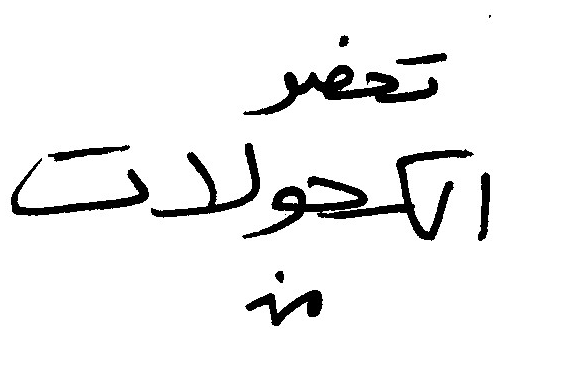 تحضر
الكحولات
من